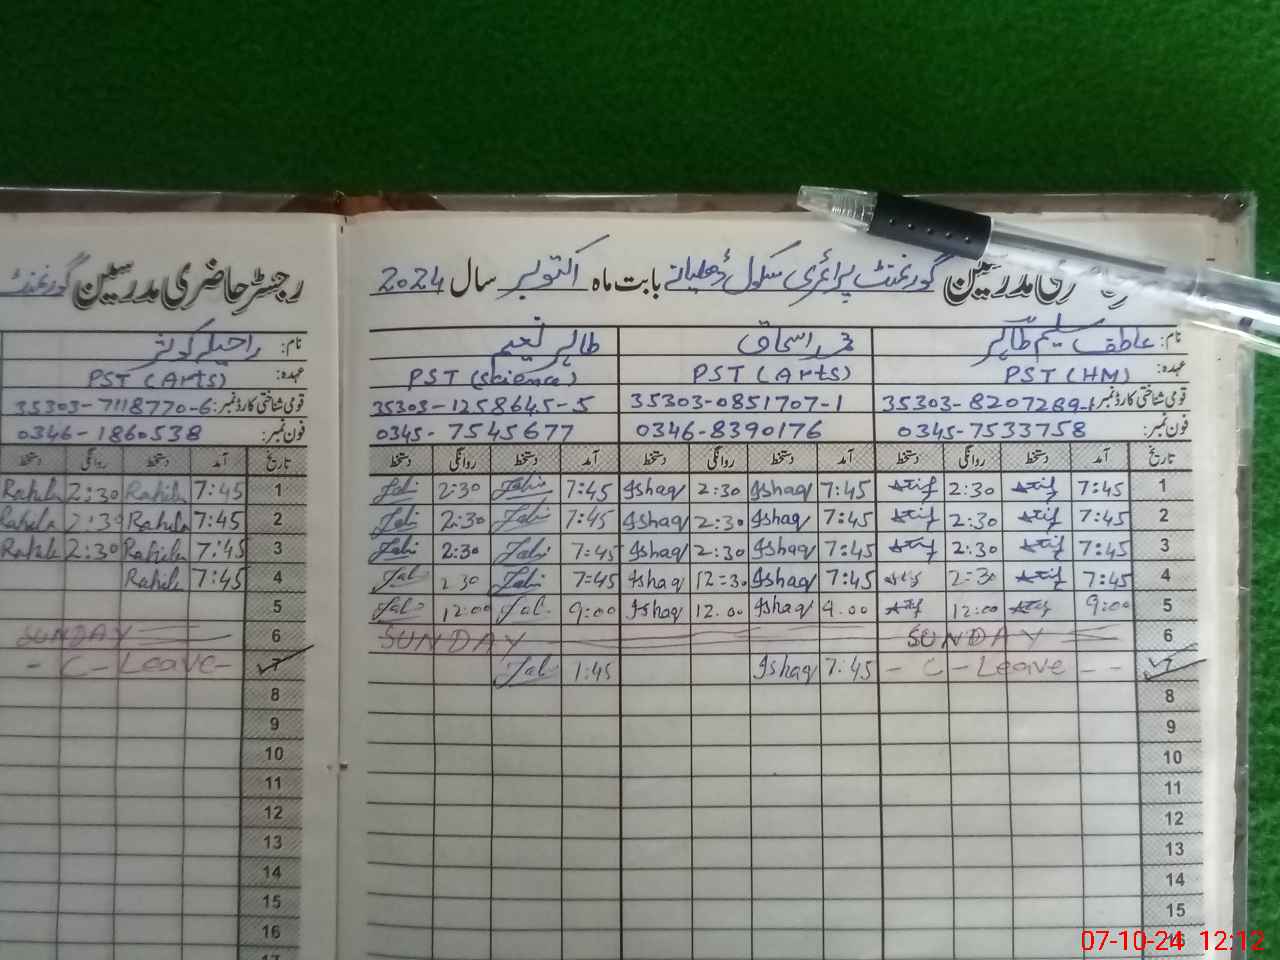 رجسٹر حاضری مدرسین گورنمنٹ پرائمری سکول ڈھلیانے بابت ماہ اکتوبر سال 2024
نام: عاطف سلیم طاہر محمد اسحاق طاہر نعیم
عہدہ: PST (HM) PST (Arts) PST (Science)
قومی شناختی کارڈ نمبر: 35303-8207289-1 35303-0851707-1 35303-1258645-5
فون نمبر: 0345-7533758 0346-8390176 0345-7545677
تاریخ آمد دستخط روانگی دستخط آمد دستخط روانگی دستخط آمد دستخط روانگی دستخط
1 7:45 Atif 2:30 Atif 7:45 Ishaq 2:30 Ishaq 7:45 2:30
2 7:45 Atif 2:30 Atif 7:45 Ishaq 2:30 Ishaq 7:45 2:30
3 7:45 Atif 2:30 Atif 7:45 Ishaq 2:30 Ishaq 7:45 2:30
4 7:45 Atif 2:30 Atif 7:45 Ishaq 12:30 Ishaq 7:45 2:30
5 9:00 Atif 12:00 Atif 9.00 Ishaq 12.00 Ishaq 9:00 12:00
6 SUNDAY SUNDAY
7 - C - Leave - - 7:45 Ishaq 1:45
8
9
10
11
12
13
14
15
16
رجسٹر حاضری مدرسین گورنمنٹ
نام: راحیلہ کوثر
عہدہ: PST (Arts)
قومی شناختی کارڈ نمبر: 35303-7118770-6
فون نمبر: 0346-1860538
تاریخ آمد دستخط روانگی دستخط
1 7:45 Rahila 2:30 Rahila
2 7:45 Rahila 2:30 Rahila
3 7:45 Rahila 2:30 Rahila
4 7:45 Rahila
5
6 SUNDAY
7 - C - Leave -
8
9
10
11
12
13
14
15
16
17
07-10-24 12:12